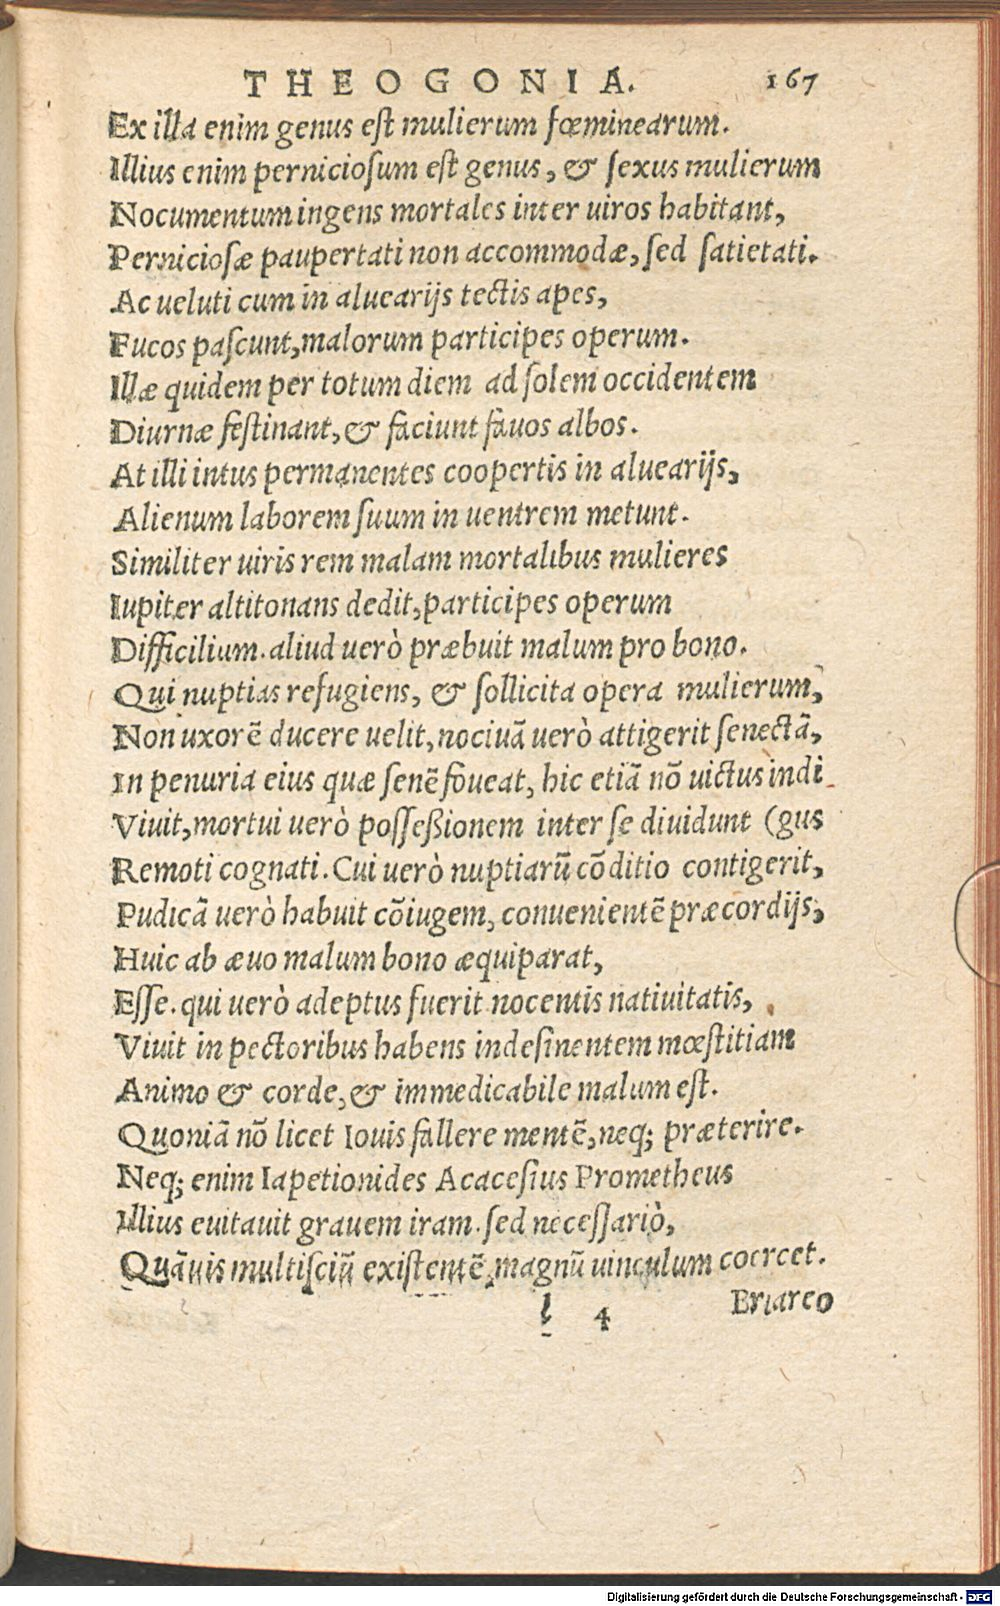 THEOGONIA. 167
Ex illa enim genus eſt mulierum fœminearum.
Illius enim pernicioſum eſt genus, & ſexus mulierum
Nocumentum ingens mortales inter uiros habitant,
Pernicioſæ paupertati non accommodæ, ſed ſatietati.
Ac ueluti cum in aluearijs tectis apes,
Fucos paſcunt, malorum participes operum.
Illæ quidem per totum diem ad ſolem occidentem
Diurnæ feſtinant, & faciunt fauos albos.
At illi intus permanentes coopertis in aluearijs,
Alienum laborem ſuum in uentrem metunt.
Similiter uiris rem malam mortalibus mulieres
Iupiter altitonans dedit, participes operum
Difficilium. aliud uerò præbuit malum pro bono.
Qui nuptias refugiens, & ſollicita opera mulierum,
Non uxorē ducere uelit, nociuā uerò attigerit ſenectā,
In penuria eius quæ ſenē foueat, hic etiā nō uictus indi
Viuit, mortui uerò poſſeßionem inter ſe diuidunt (gus
Remoti cognati. Cui uerò nuptiarū cōditio contigerit,
Pudicā uerò habuit cōiugem, conuenientē præcordijs,
Huic ab æuo malum bono æquiparat,
Eſſe. qui uerò adeptus fuerit nocentis natiuitatis,
Viuit in pectoribus habens indeſinentem mœſtitiam
Animo & corde, & immedicabile malum eſt.
Quoniā nō licet Iouis fallere mentē, neq; præterire.
Neq; enim Iapetionides Acaceſius Prometheus
Illius euitauit grauem iram. ſed neceſſariò,
Quāuis multiſciū exiſtentē, magnū uinculum coercet.
l 4 Briareo
Digitalisierung gefördert durch die Deutsche Forschungsgemeinschaft - DFG